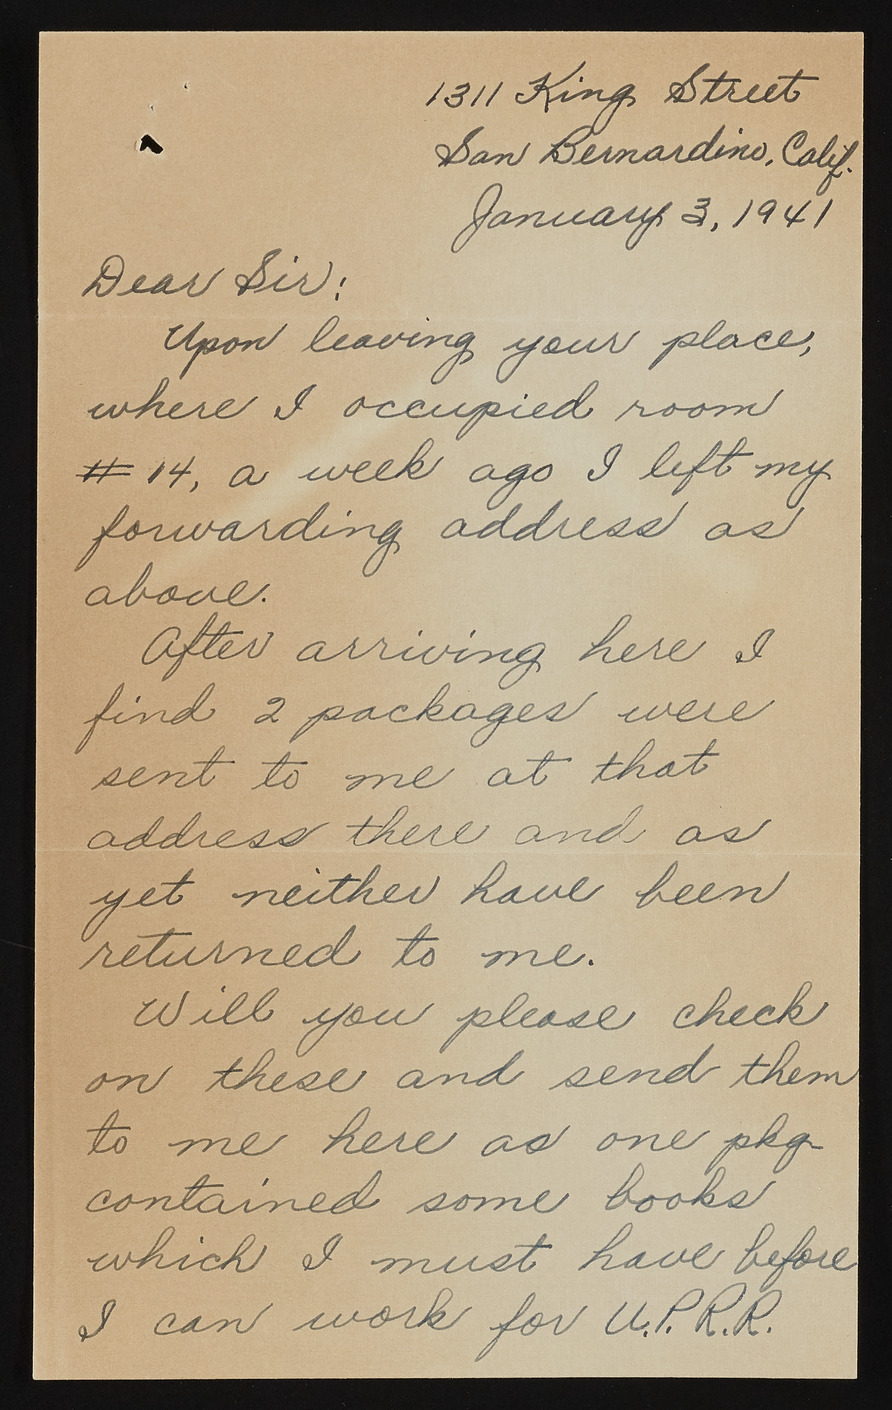 1311 King Street
San Bernardino, Calif.
January 3, 1941
Dear Sir:
Upon leaving your place,
where I occupied room
# 14, a week ago I left my
forwarding address as
above.
After arriving here I
find 2 packages were
sent to me at that
address there and as
yet neither have been
returned to me.
Will you please check
on these and send them
to me here as one pkg
contained some books
which I must have before
I can work for U.P.R.R.